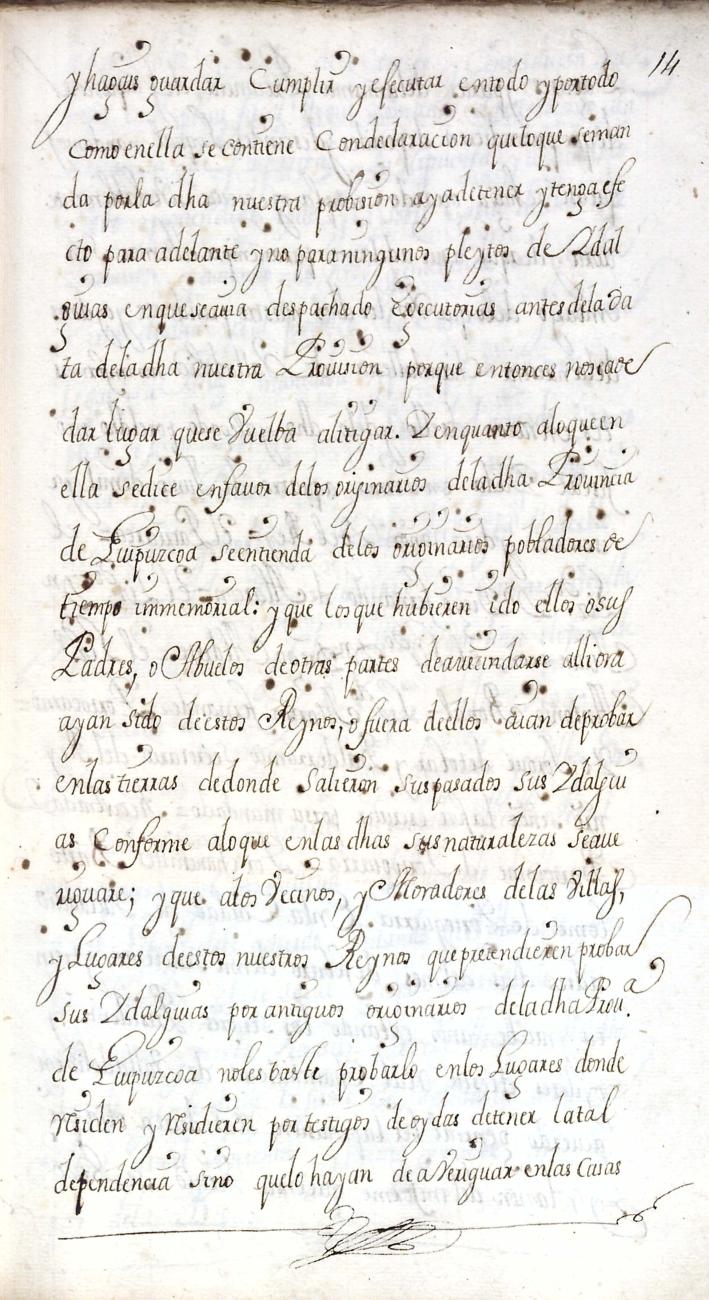 14
y hagais guardar Cumplir y esecutar entodo y portodo
como enella se contiene Condeclaracion queloque seman
da porla dha nuestra probision ayadetener y tenga efe
cto para adelante y no paraningunos pleytos de Ydal
guias enqueseauia despachado Executorias antesdelada
ta deladha nuestra Prouision porque entonces noseade
dar lugar quese Vuelba alitigar. Y enquanto aloqueen
ella sedice enfauor delos originarios deladha Prouincia
de Guipuzcoa seentienda delos originarios pobladores de
tiempo immemorial: y que losque hubieren ido ellos osus
Padres, o Abuelos deotras partes deaueindarse alli ora
ayan sido deestos Reynos, o fuera deellos aian deprobar
enlastierras dedonde Salieron suspasados sus Ydalgui
as Conforme aloque enlas dhas susnaturalezas seaue
riguare; y que alos Vecinos, y Moradores delas Villas,
y Lugares deestos nuestros Reynos quepretendieren probar
sus Ydalguias por antiguos originarios deladha Prou.ª
de Guipuzcoa nolesbaste probarlo enlos Lugares donde
Residen y Residieren por testigos deoydas detener latal
dependencia sino quelo hayan deaVeriguar enlas Casas